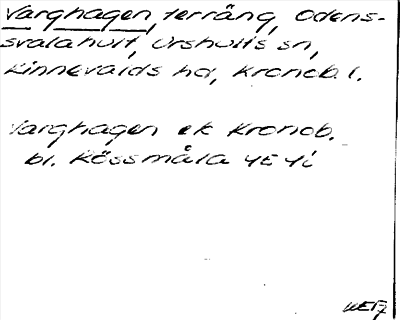 Varghagen, terräng, Odens-
svalahult, Urshults sn,
Kinnevalds hd, Kronob. l.
Varghagen ek Kronob.
bl. Kössmåla 4E4i